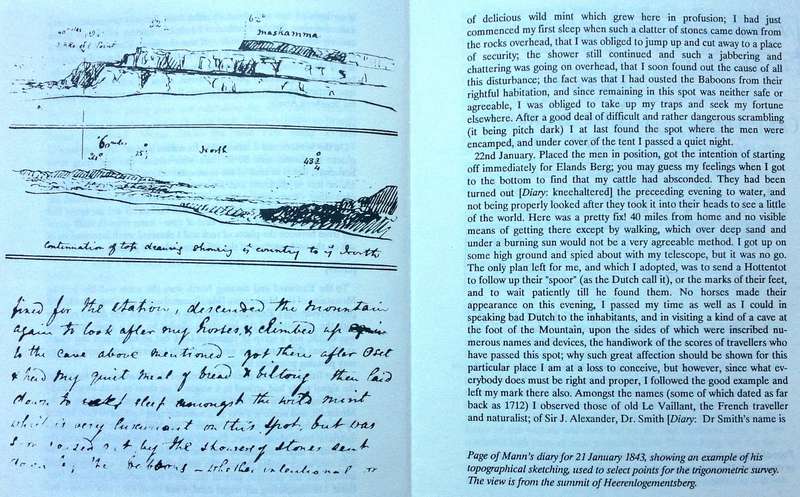 62°
mashamma
North
43 3/4
Continuation of top drawing showing ye country to ye North
fixed for the station, descended the mountain
again to look after my horses, & climbed up again
to the cave above mentioned – got there after Oset
& had my quiet meal of bread & biltong then laid
down to sleep amongst the wild mint
which is very luxuriant on this spot, but was
by the showers of stones sent
down by the Baboons – whether intentional or
of delicious wild mint which grew here in profusion; I had just
commenced my first sleep when such a clatter of stones came down from
the rocks overhead, that I was obliged to jump up and cut away to a place
of security; the shower still continued and such a jabbering and
chattering was going on overhead, that I soon found out the cause of all
this disturbance; the fact was that I had ousted the Baboons from their
rightful habitation, and since remaining in this spot was neither safe or
agreeable, I was obliged to take up my traps and seek my fortune
elsewhere. After a good deal of difficult and rather dangerous scrambling
(it being pitch dark) I at last found the spot where the men were
encamped, and under cover of the tent I passed a quiet night.
22nd January. Placed the men in position, got the intention of starting
off immediately for Elands Berg; you may guess my feelings when I got
to the bottom to find that my cattle had absconded. They had been
turned out [Diary: kneehaltered] the preceeding evening to water, and
not being properly looked after they took it into their heads to see a little
of the world. Here was a pretty fix! 40 miles from home and no visible
means of getting there except by walking, which over deep sand and
under a burning sun would not be a very agreeable method. I got up on
some high ground and spied about with my telescope, but it was no go.
The only plan left for me, and which I adopted, was to send a Hottentot
to follow up their "spoor" (as the Dutch call it), or the marks of their feet,
and to wait patiently till he found them. No horses made their
appearance on this evening, I passed my time as well as I could in
speaking bad Dutch to the inhabitants, and in visiting a kind of a cave at
the foot of the Mountain, upon the sides of which were inscribed nu-
merous names and devices, the handiwork of the scores of travellers who
have passed this spot; why such great affection should be shown for this
particular place I am at a loss to conceive, but however, since what ev-
erybody does must be right and proper, I followed the good example and
left my mark there also. Amongst the names (some of which dated as far
back as 1712) I observed those of old Le Vaillant, the French traveller
and naturalist; of Sir J. Alexander, Dr. Smith [Diary: Dr Smith's name is
Page of Mann's diary for 21 January 1843, showing an example of his
topographical sketching, used to select points for the trigonometric survey.
The view is from the summit of Heerenlogementsberg.